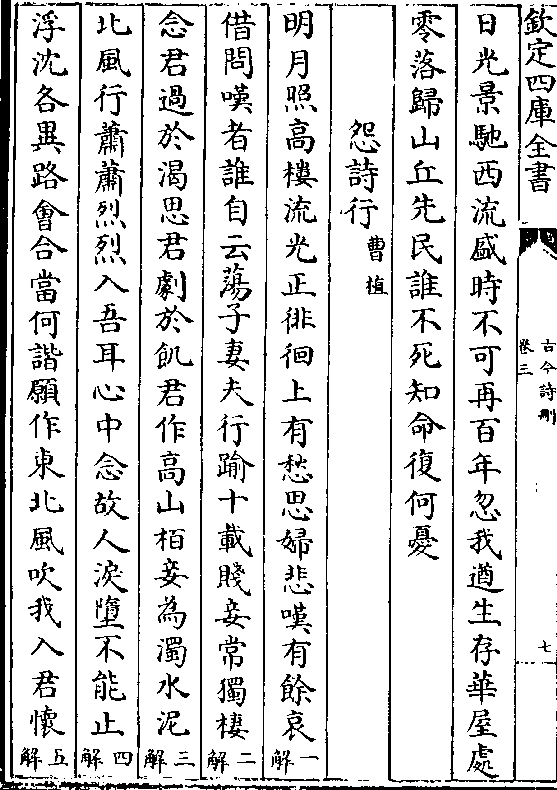 欽定四庫全書
古今詩刪
卷三
七
日光景馳西流盛時不可再百年忽我遒生存華屋處
零落歸山丘先民誰不死知命復何憂
怨詩行
曹植
明月照高樓流光正徘徊上有愁思婦悲嘆有餘哀一解
借問嘆者誰自云蕩子妻夫行踰十載賤妾常獨棲二解
念君過於渴思君劇於飢君作高山栢妾為濁水泥三解
北風行蕭蕭烈烈入吾耳心中念故人淚墮不能止四解
浮沈各異路會合當何諧願作東北風吹我入君懷五解